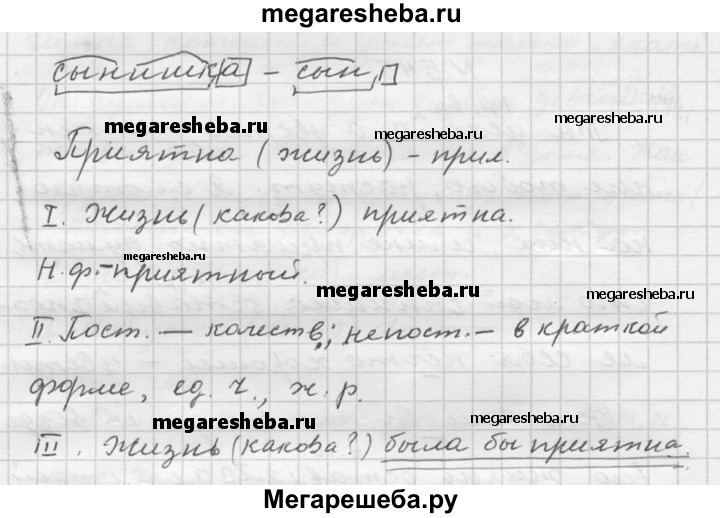 megaresheba.ru
сынишка – сын
megaresheba.ru
megaresheba.ru
megaresheba.ru
Приятна (жизнь) – прил.
I. Жизнь (какова?) приятна.
megaresheba.ru
Н.ф. – приятный.
megaresheba.ru
II Пост. — качеств.; непост. – в краткой
форме, ед. ч., ж. р.
megaresheba.ru
megaresheba.ru
III. Жизнь (какова?) была бы приятна.
Мегарешеба.ру